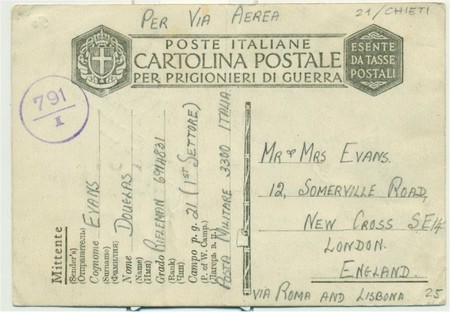 PER VIA AEREA
21/CHIETI
POSTE ITALIANE
CARTOLINA POSTALE
PER PRIGIONIERI DI GUERRA
ESENTE
DA TASSE
POSTALI
791
II
Mittente
(Sender's)
(Отправитель)
Cognome EVANS
(Surname)
(Фамилия)
Nome DOUGLAS
(Name)
(Имя)
Grado RIFLEMAN
(Rank)
(Чин)
Campo p. g. 21 (1ST SETTORE)
(P. of W. Camp.)
(Лагерь в. п.)
POSTA MILITARE 3300 ITALIA
MR & MRS EVANS.
12, SOMERVILLE ROAD,
NEW CROSS S.E.14
LONDON.
ENGLAND.
VIA ROMA AND LISBONA
25